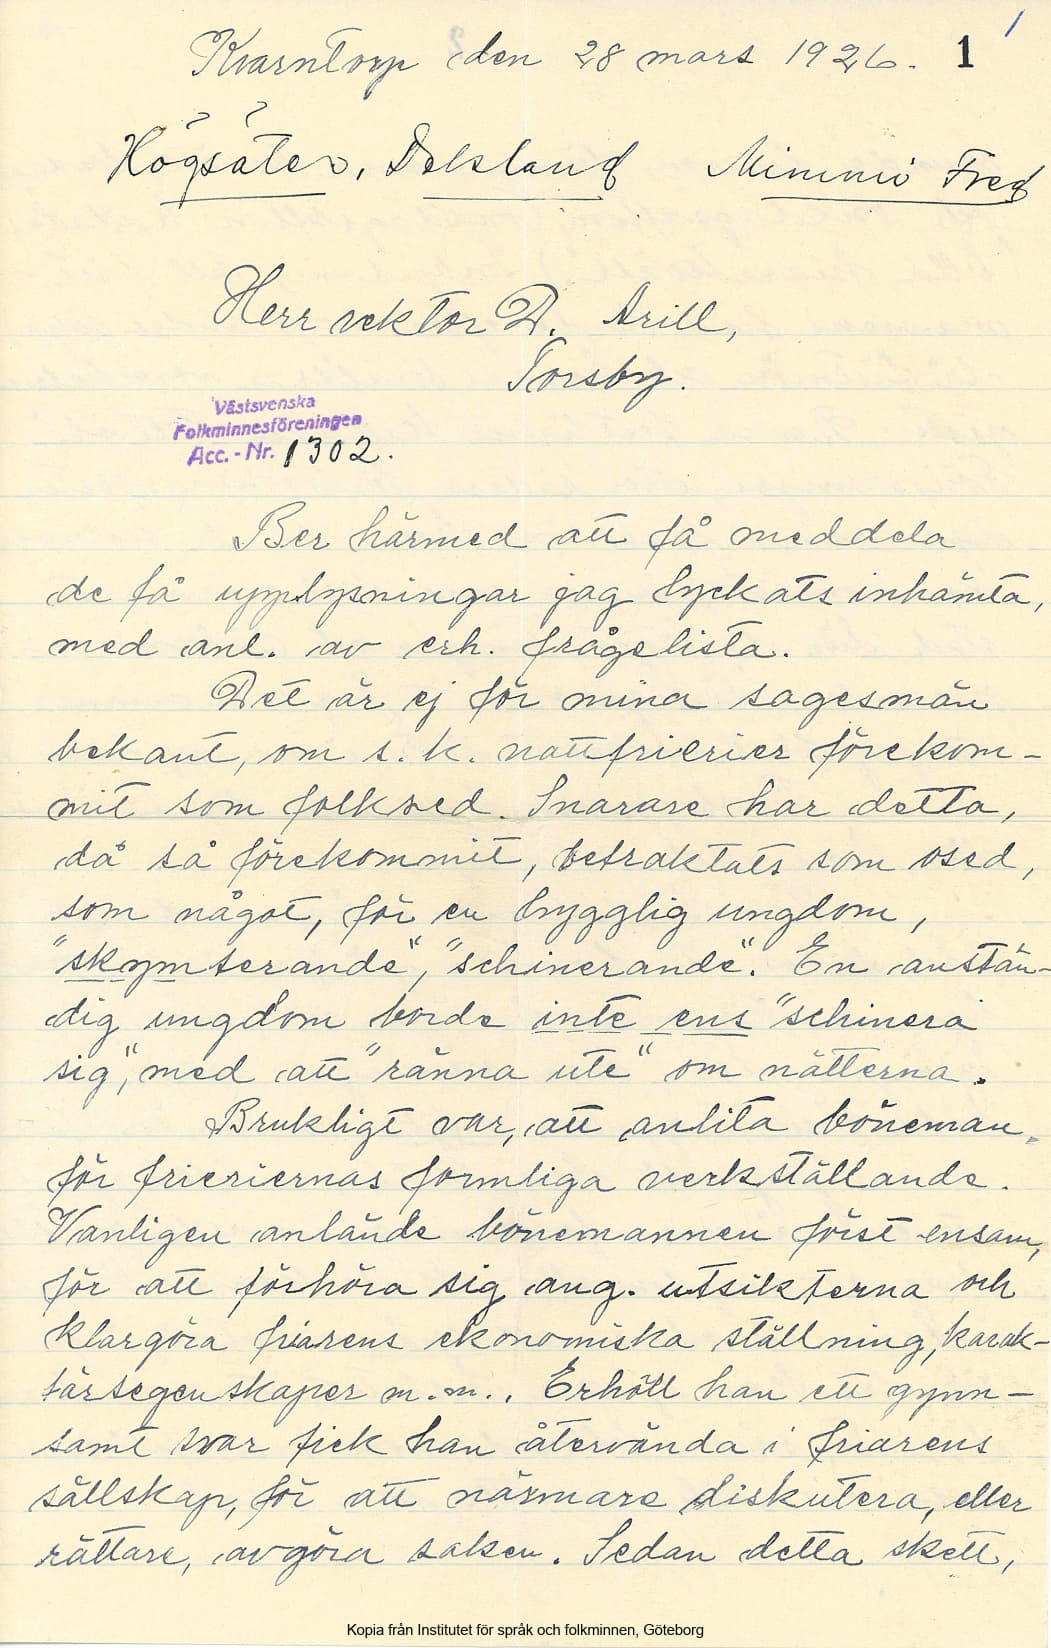 Kvarntorp den 28 mars 1926. 1 1
Högsäter, Dalsland Mimmi Fred
Herr rektor D. Arill,
Torsby.
Västsvenska
Folkminnesföreningen
Acc. - Nr. 1302.
Ber härmed att få meddela
de få upplysningar jag lyckats inhämta,
med anl. av erh. frågelista.
Det är ej för mina sagesmän
bekant, om s. k. nattfrierier förekom-
mit som folksed. Snarare har detta,
då så förekommit, betraktats som osed,
som något, för en hygglig ungdom,
"skymterande", "schinerande". En anstän-
dig ungdom borde inte ens "schinera
sig", med att "ränna ute" om nätterna.
Brukligt var, att anlita böneman,
för frieriernas formliga verkställande.
Vanligen anlände bönemannen först ensam,
för att förhöra sig ang. utsikterna och
klargöra friarens ekonomiska ställning, karak-
tärsegenskaper m. m.. Erhöll han ett gynn-
samt svar fick han återvända i friarens
sällskap, för att närmare diskutera, eller
rättare, avgöra saken. Sedan detta skett,
Kopia från Institutet för språk och folkminnen, Göteborg